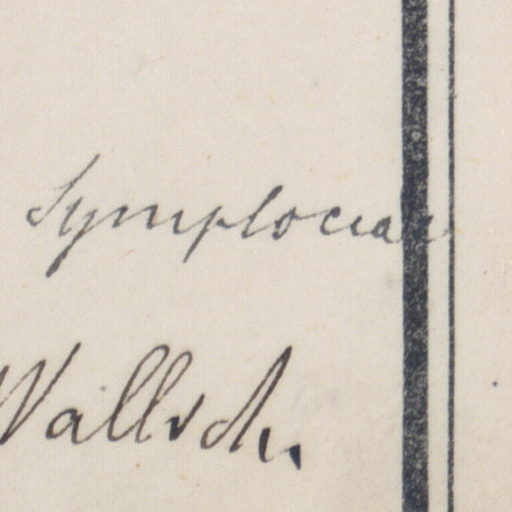 Symplociae
Wallich.